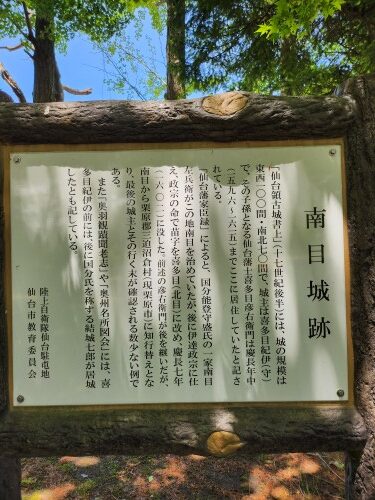 南目城跡
『仙台領古城書上』(十七世紀後半)には、城の規模は
東西一〇〇間・南北七〇間で、城主は喜多目紀伊(守)
で、その子孫となる仙台藩士喜多目彦右衛門は慶長年中
(一五九六〜一六一五)までここに居住していたと記さ
れている。
『仙台藩家臣録』によると、国分能登守盛氏の一家南目
左兵衛がこの地南目を治めていたが、後に伊達政宗に仕
え、政宗の命で苗字を喜多目(北目)に改め、慶長七年
(一六〇二)に没した。前述の彦右衛門が後を継いだが、
南目から栗原郡三迫沼倉村(現栗原市)に知行替えとな
り、最後の城主とその行く末が確認される数少ない例で
ある。
また『奥羽観蹟聞老志』や『奥州名所図会』には、喜
多目紀伊の前には、後に国分氏を称する結城七郎が居城
したとも記している。
陸上自衛隊仙台駐屯地
仙台市教育委員会